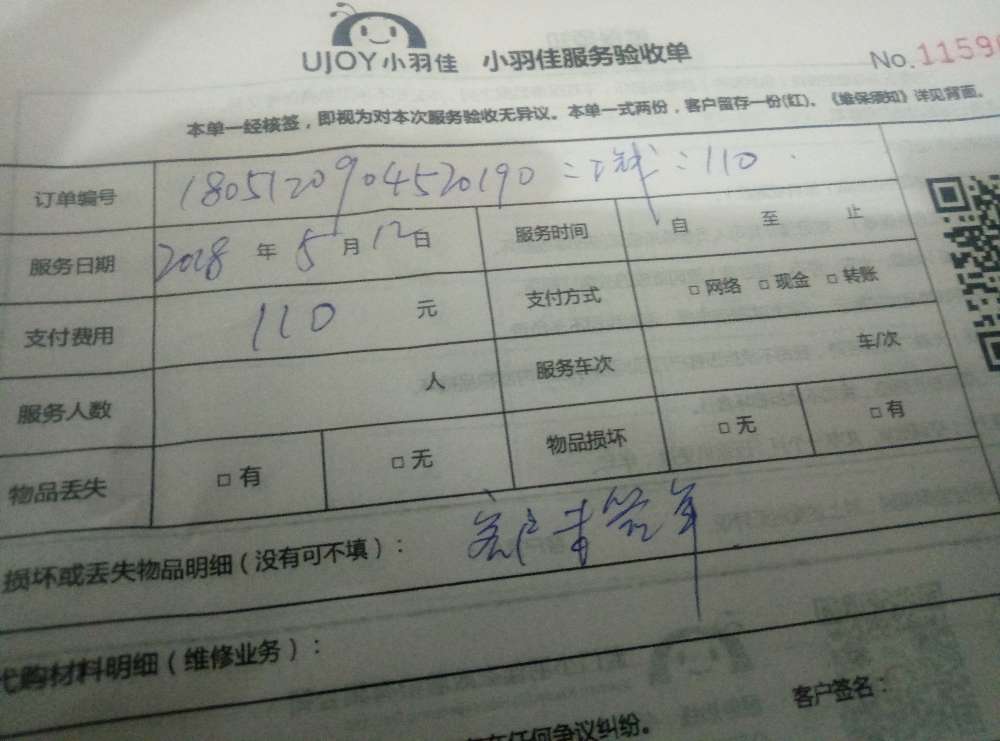 UJOY小羽佳 小羽佳服务验收单
No.1159
本单一经核签，即视为对本次服务验收无异议。本单一式两份，客户留存一份(红)。《维保须知》详见背面。
订单编号 1805120904520190 110
服务日期 2018年5月12日 服务时间 自 至 止
支付费用 110 元 支付方式 □网络 □现金 □转账
服务人数 人 服务车次 车/次
物品丢失 □有 □无 物品损坏 □无 □有
损坏或丢失物品明细（没有可不填）： 客户未签单
代购材料明细（维修业务）：
客户签名：
任何争议纠纷。